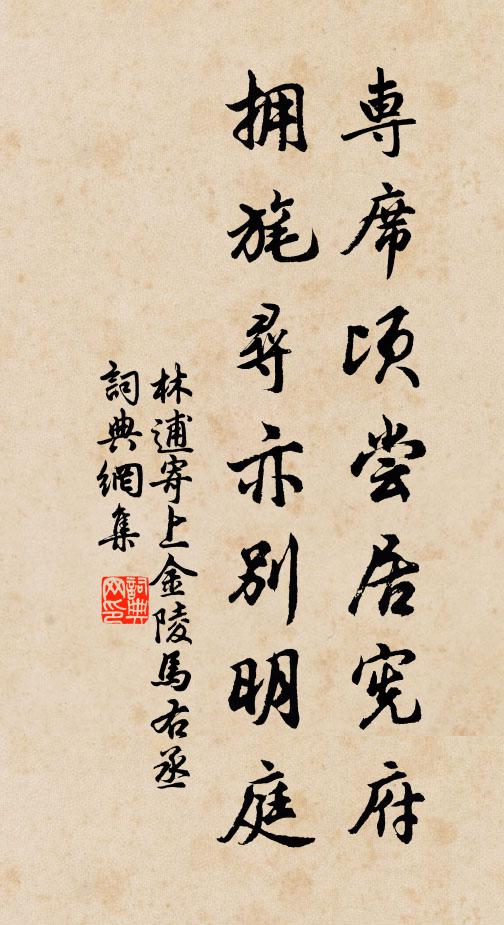 專席頃尝居宪府
拥旄尋亦别明庭
林逋寄上金陵馬右丞
詞典網集
詞典網印